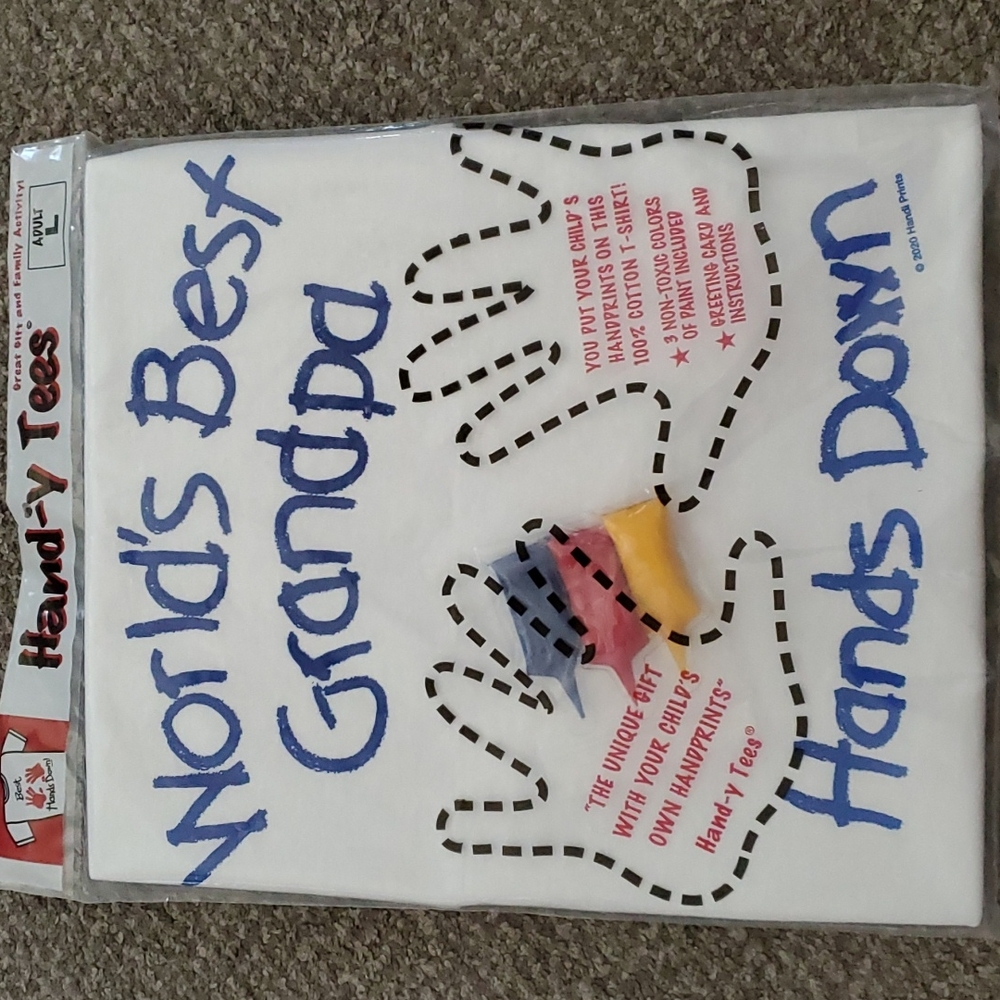 Great Gift and Family Activity!
Hand-y Tees®
ADULT
L
Best
Hands Down!
World's Best
Grandpa
"THE UNIQUE GIFT
WITH YOUR CHILD'S
OWN HANDPRINTS"
Hand-y Tees®
YOU PUT YOUR CHILD'S
HANDPRINTS ON THIS
100% COTTON T-SHIRT!
★ 3 NON-TOXIC COLORS
OF PAINT INCLUDED
★ GREETING CARD AND
INSTRUCTIONS
Hands Down
© 2020 Handi Prints